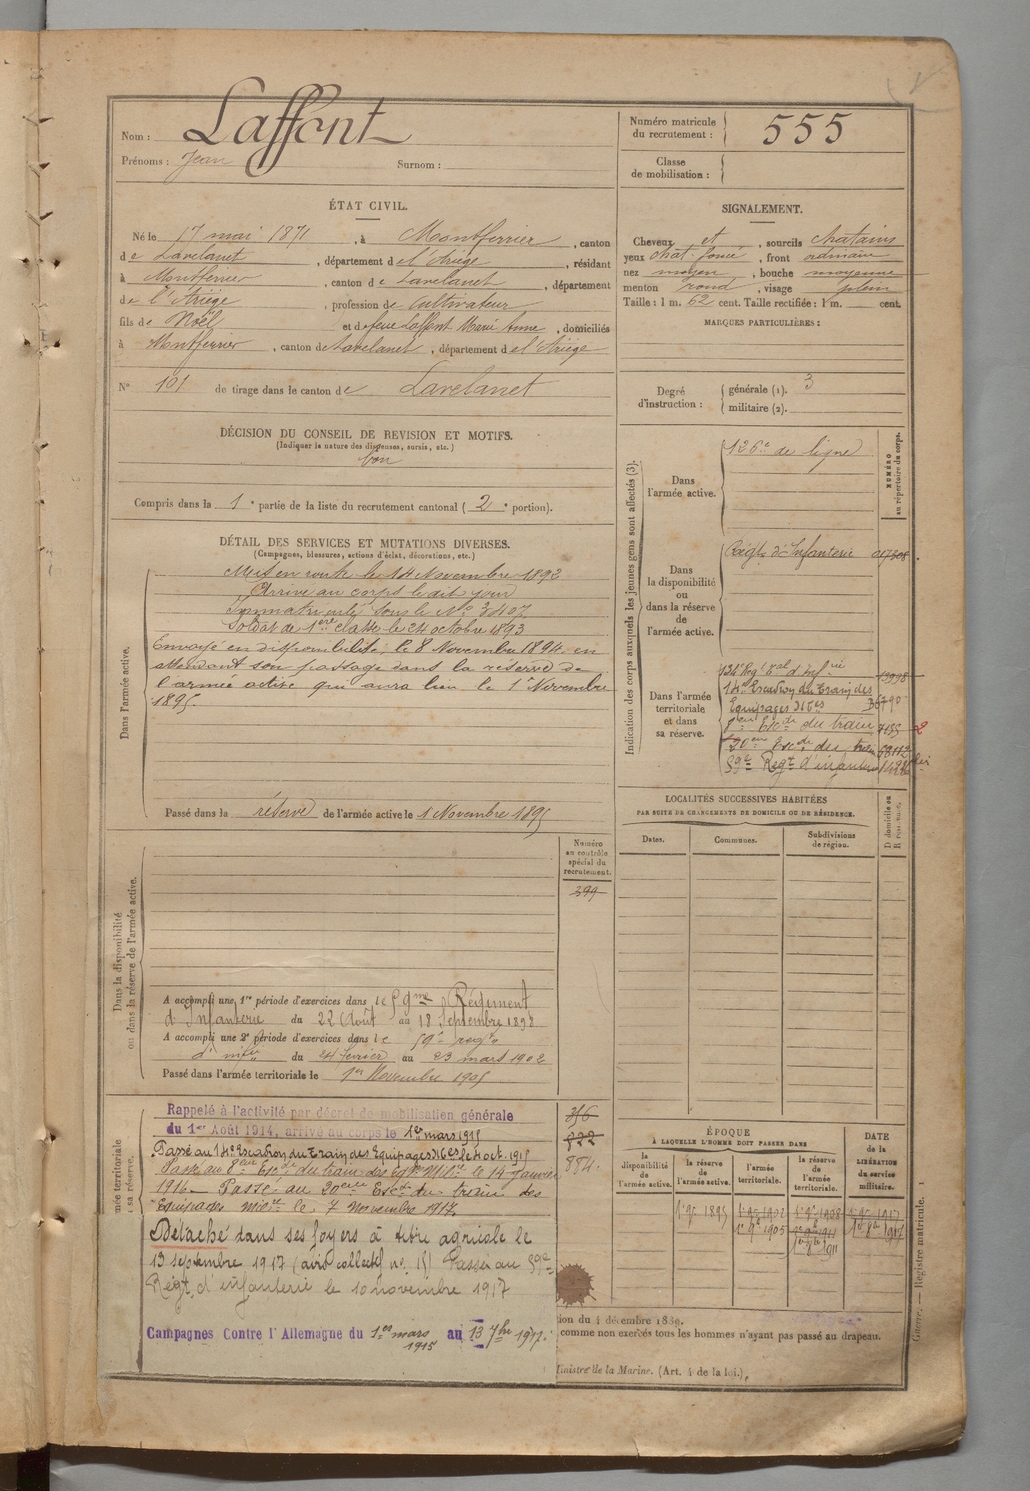 Nom : Laffont
Prénoms : Jean Surnom :
Numéro matricule du recrutement : 555
Classe de mobilisation :
ÉTAT CIVIL.
Né le 17 mai 1871, à Montferrier, canton
de Lavelanet, département de l'Ariège, résidant
à Montferrier, canton de Lavelanet, département
de l'Ariège, profession de cultivateur
fils de Noël et de feue Laffont Marie Anne, domiciliés
à Montferrier, canton de Lavelanet, département de l'Ariège
N° 101 de tirage dans le canton de Lavelanet
SIGNALEMENT.
Cheveux et, sourcils chatains
yeux chat. foncé, front ordinaire
nez moyen, bouche moyenne
menton rond, visage plein
Taille : 1 m. 62 cent. Taille rectifiée : 1 m. cent.
MARQUES PARTICULIÈRES :
Degré d'instruction : générale (1). 3
militaire (2).
DÉCISION DU CONSEIL DE REVISION ET MOTIFS.
(Indiquer la nature des dispenses, sursis, etc.)
bon
Compris dans la 1e partie de la liste du recrutement cantonal (2e portion).
DÉTAIL DES SERVICES ET MUTATIONS DIVERSES.
(Campagnes, blessures, actions d'éclat, décorations, etc.)
Dans l'armée active.
Mis en route le 14 Novembre 1892
Arrivé au corps le dit jour
Immatriculé sous le No 3407
Soldat de 1ère classe le 24 octobre 1893
Envoyé en disponibilité, le 8 Novembre 1894 en
attendant son passage dans la réserve de
l'armée active qui aura lieu le 1er Novembre
1895.
Passé dans la réserve de l'armée active le 1 Novembre 1895
Indication des corps auxquels les jeunes gens sont affectés (3).
NUMÉRO au répertoire du corps.
Dans l'armée active.
126e de ligne
Dans la disponibilité ou dans la réserve de l'armée active.
Régt d'Infanterie
Dans l'armée territoriale et dans sa réserve.
134e Regt tal d'Infrie 13998
14e Escadron du Train des
Equipages Mres 36790
8em Esc de du train 4135
20em Esc de du train
59e Regt d'infanterie
LOCALITÉS SUCCESSIVES HABITÉES
PAR SUITE DE CHANGEMENTS DE DOMICILE OU DE RÉSIDENCE.
Dates. Communes. Subdivisions de région.
Dans la disponibilité ou dans la réserve de l'armée active.
Numéro au contrôle spécial du recrutement.
399
A accompli une 1re période d'exercices dans le 59me Régiment
d'Infanterie du 22 Août au 18 Septembre 1898
A accompli une 2e période d'exercices dans le 59e regt
d'infie du 24 février au 23 mars 1902
Passé dans l'armée territoriale le 1er Novembre 1905
Rappelé à l'activité par décret de mobilisation générale
du 1er Août 1914, arrivé au corps le 1er mars 1915
Passé au 14e Escadron du Train des Equipages Mres le 4 oct. 1915
Passé au 8ème Esc de du train des Eqges Mres le 14 Janvier
1916 - Passé au 20eme Esc de du train des
Equipages Mres le 7 Novembre 1917
Détaché dans ses foyers à titre agricole le
13 septembre 1917 (avis collectif no 15) Passé au 59e
Régt d'infanterie le 10 novembre 1917
Campagnes Contre l'Allemagne du 1er mars 1915 au 13 7bre 1917.
356
822
884.
ÉPOQUE
À LAQUELLE L'HOMME DOIT PASSER DANS
la disponibilité de l'armée active.
la réserve de l'armée active.
l'armée territoriale.
la réserve de l'armée territoriale.
DATE de la LIBÉRATION du service militaire.
mée territoriale
sa réserve.
ion du 4 décembre 1889.
comme non exercés tous les hommes n'ayant pas passé au drapeau.
Ministre de la Marine. (Art. 4 de la loi.)
Guerre. — Registre matricule. 1